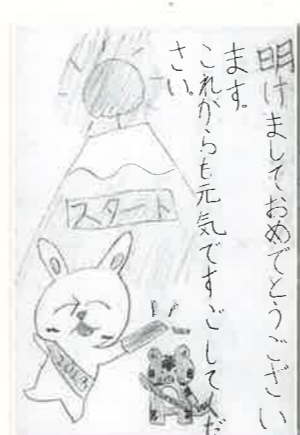 明けましておめでとうござい
ます。
これからも元気ですごしてくだ
さい。
スタート